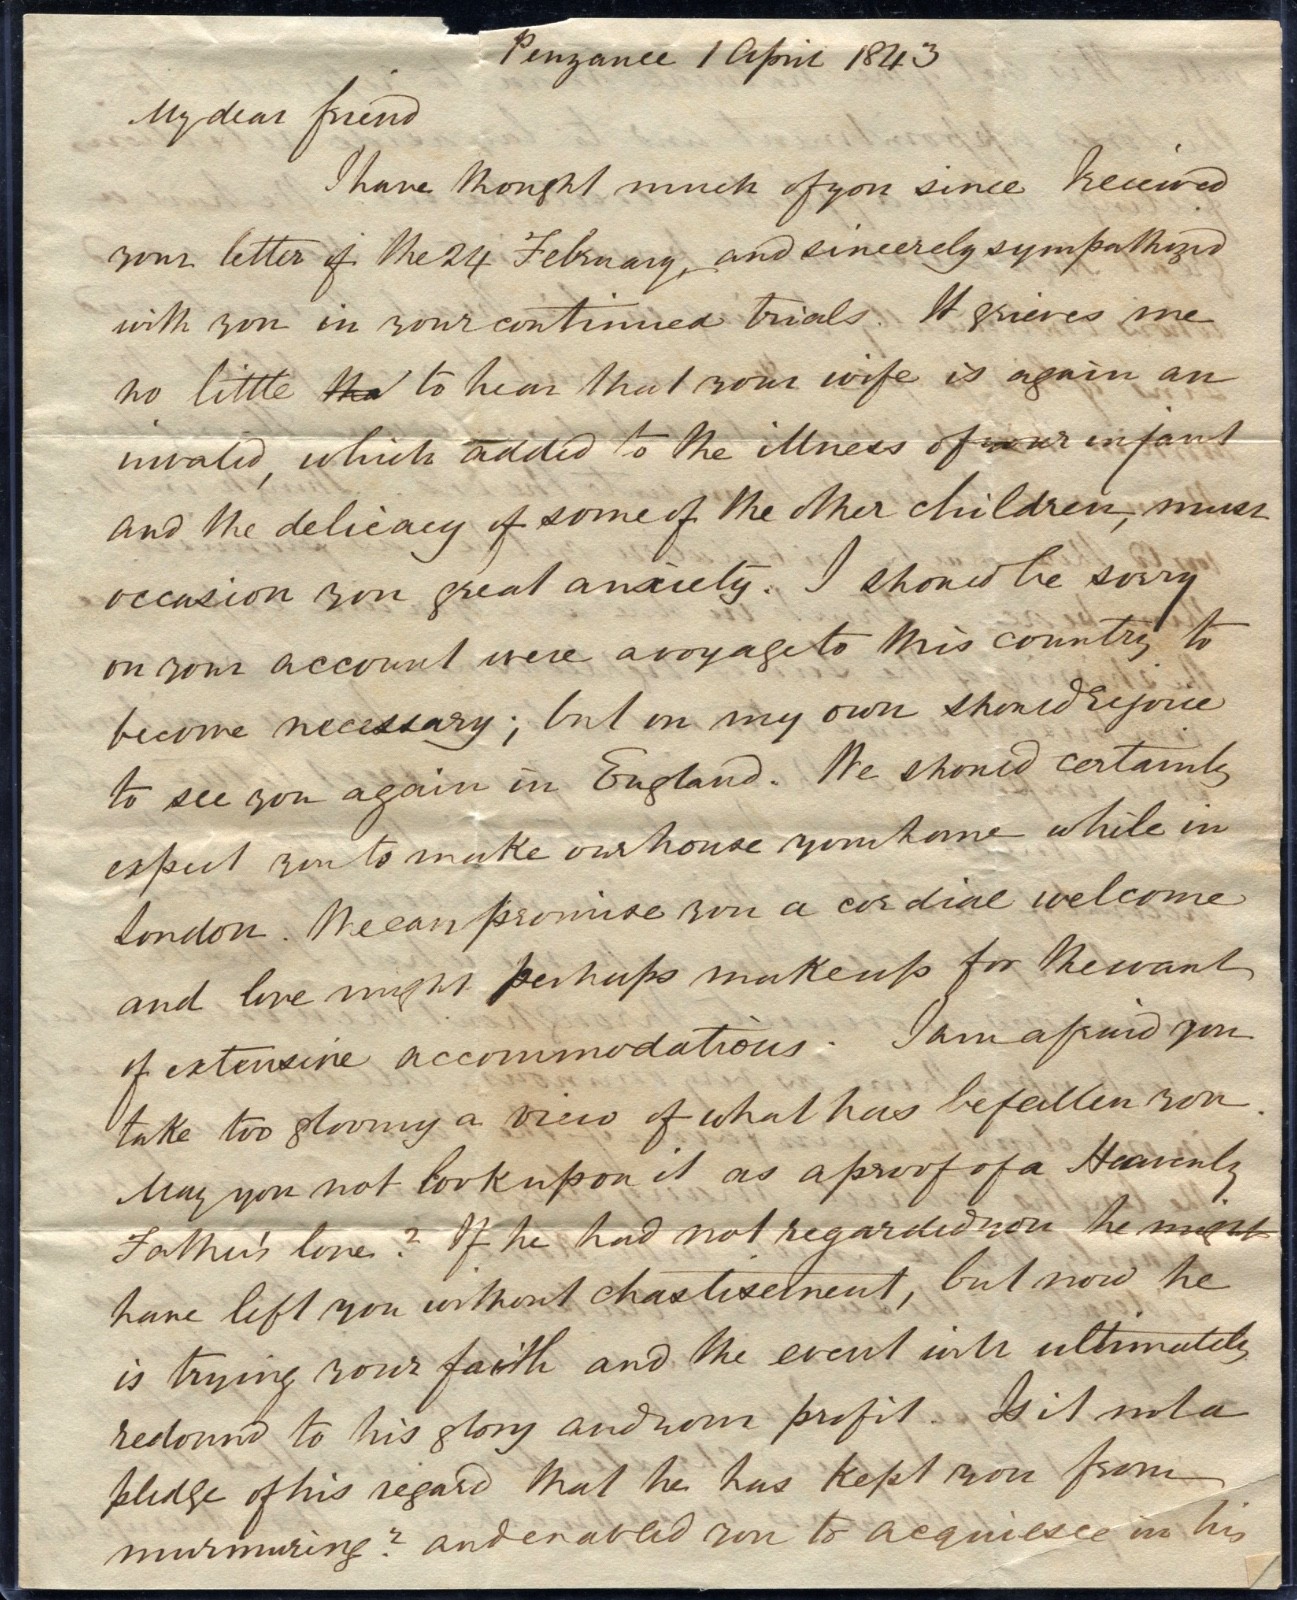 Penzance 1 April 1843
My dear friend
I have thought much of you since I received
your letter of the 24 February, and sincerely sympathized
with you in your continued trials. It grieves me
no little tha to hear that your wife is again an
invalid, which added to the illness of your infant
and the delicacy of some of the other children, must
occasion you great anxiety. I should be sorry
on your account were a voyage to this country to
become necessary; but on my own should rejoice
to see you again in England. We should certainly
expect you to make our house your home while in
London. We can promise you a cordial welcome
and love might perhaps make up for the want
of extensive accommodations. I am afraid you
take too gloomy a view of what has befallen you.
May you not look upon it as a proof of a Heavenly
Father's love? If he had not regarded you he might
have left you without chastisement, but now he
is trying your faith and the event will ultimately
redound to his glory and your profit. Is it not a
pledge of his regard that he has kept you from
murmuring? and enabled you to acquiesce in his